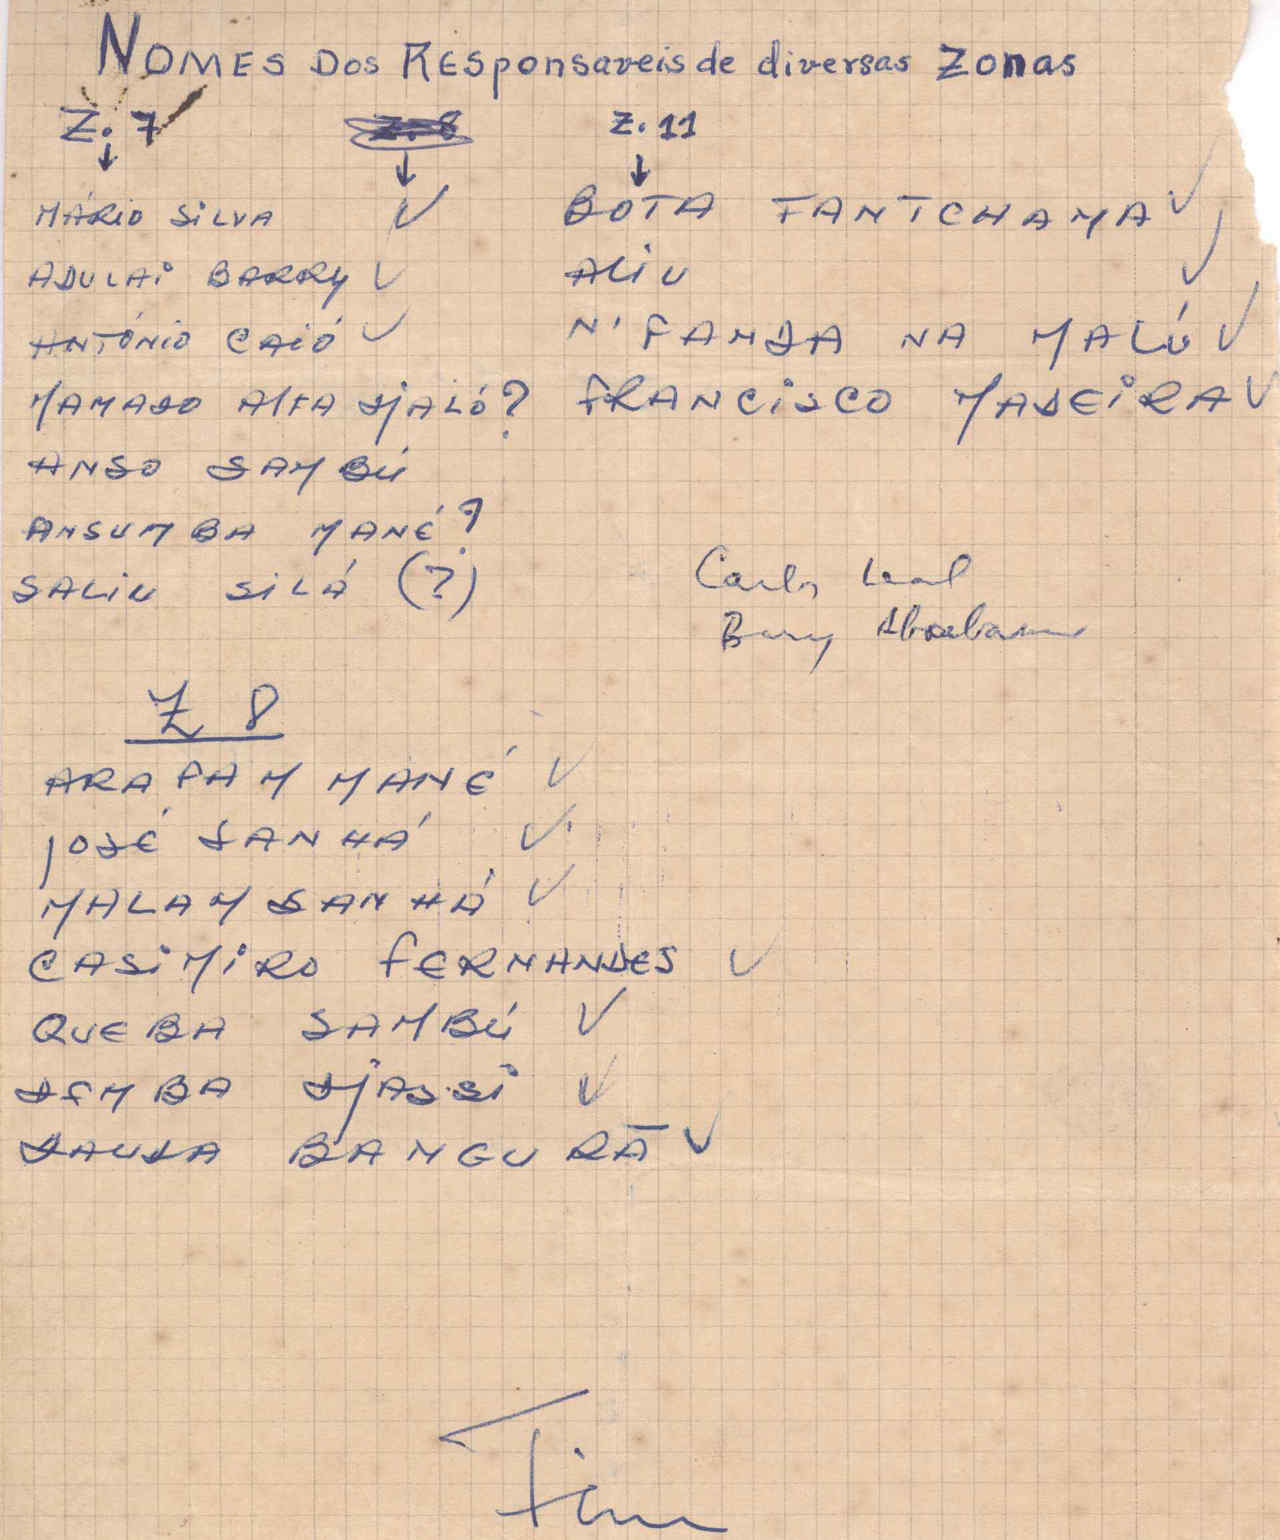 NOMES Dos REsponsaveis de diversas Zonas
Z. 7
Z. 8
Z. 11
MÁRIO SiLVA ✓
ADULAi BARRY ✓
ANTÓNiO CAiÓ ✓
MAMADO ALFA DJALÓ?
ANSO SAMBÚ
ANSUMBA MANÉ?
SALiU SiLÁ (?)
BOTA FANTCHAMA ✓
ALiU ✓
N'FAMDA NA MALÚ ✓
FRANCiSCO MADEiRA ✓
Carlos Leal
Barry
Z 8
ARAFAM MANÉ ✓
JOSÉ SANHÁ ✓
MALAM SANHÁ ✓
CASiMiRO FERNANDES ✓
QUEBA SAMBÚ ✓
DEMBA DJASSi ✓
DAUDA BANGURÃ ✓
Fim